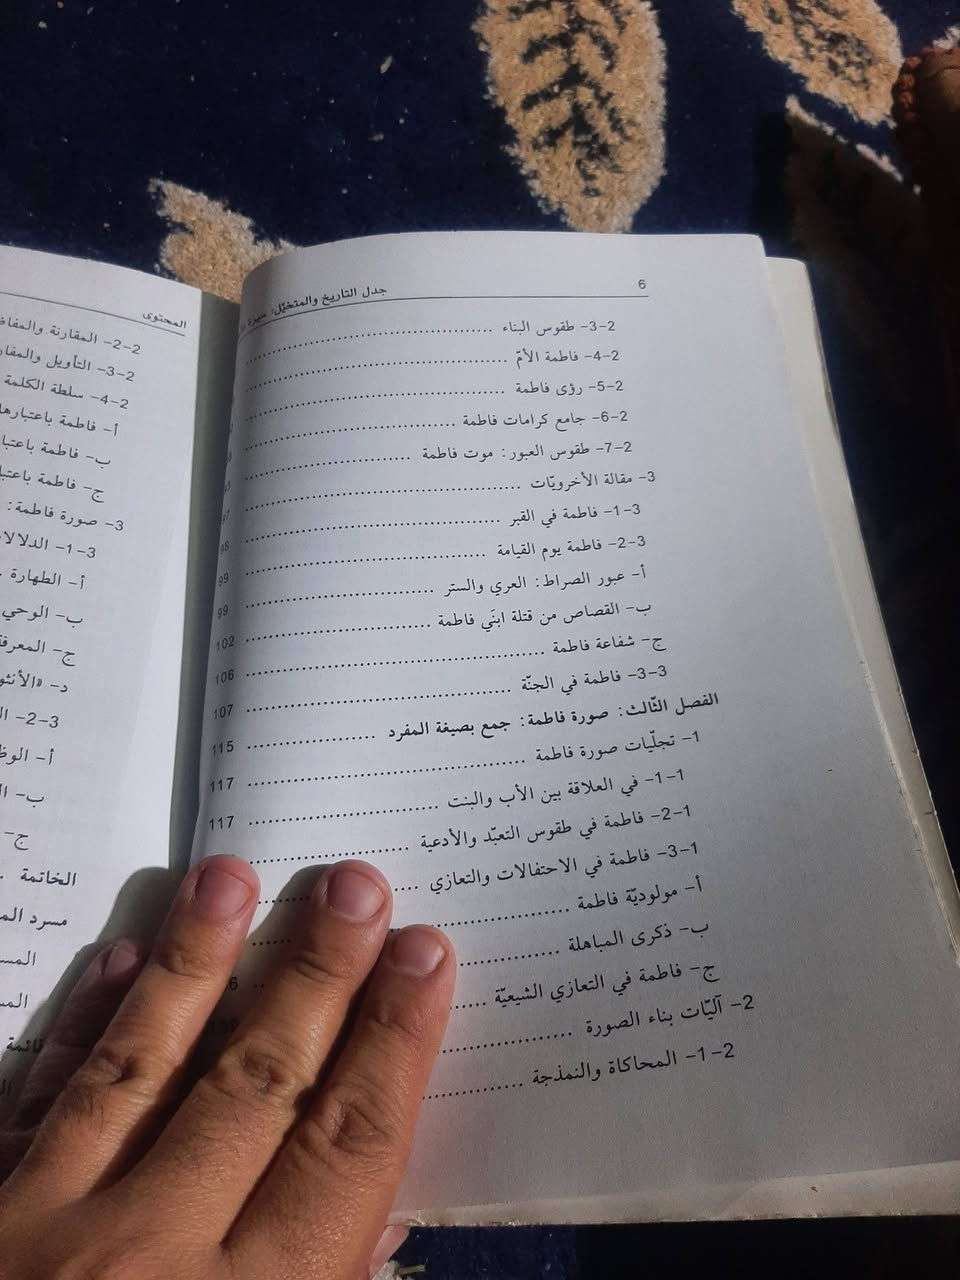 6
جدل التاريخ والمتخيّل: سيرة
2-3- طقوس البناء
2-4- فاطمة الأمّ
2-5- رؤى فاطمة
2-6- جامع كرامات فاطمة
2-7- طقوس العبور: موت فاطمة
3- مقالة الأخرويّات
3-1- فاطمة في القبر
3-2- فاطمة يوم القيامة
أ- عبور الصراط: العري والستر 99
ب- القصاص من قتلة ابنَي فاطمة 102
ج- شفاعة فاطمة 106
3-3- فاطمة في الجنّة 107
الفصل الثّالث: صورة فاطمة: جمع بصيغة المفرد 115
1- تجلّيات صورة فاطمة 117
1-1- في العلاقة بين الأب والبنت 117
1-2- فاطمة في طقوس التعبّد والأدعية
1-3- فاطمة في الاحتفالات والتعازي
أ- مولوديّة فاطمة
ب- ذكرى المباهلة
ج- فاطمة في التعازي الشيعيّة
2- آليّات بناء الصورة
2-1- المحاكاة والنمذجة
المحتوى
2-2- المقارنة
2-3- التأويل
2-4- سلطة الكلمة
أ- فاطمة باعتبارها
ب- فاطمة
ج- فاطمة
3- صورة فاطمة:
3-1-
أ- الطهارة
ب- الوحي
ج-
د-
3-2-
أ-
ب-
ج-
الخاتمة
مسرد
قائمة